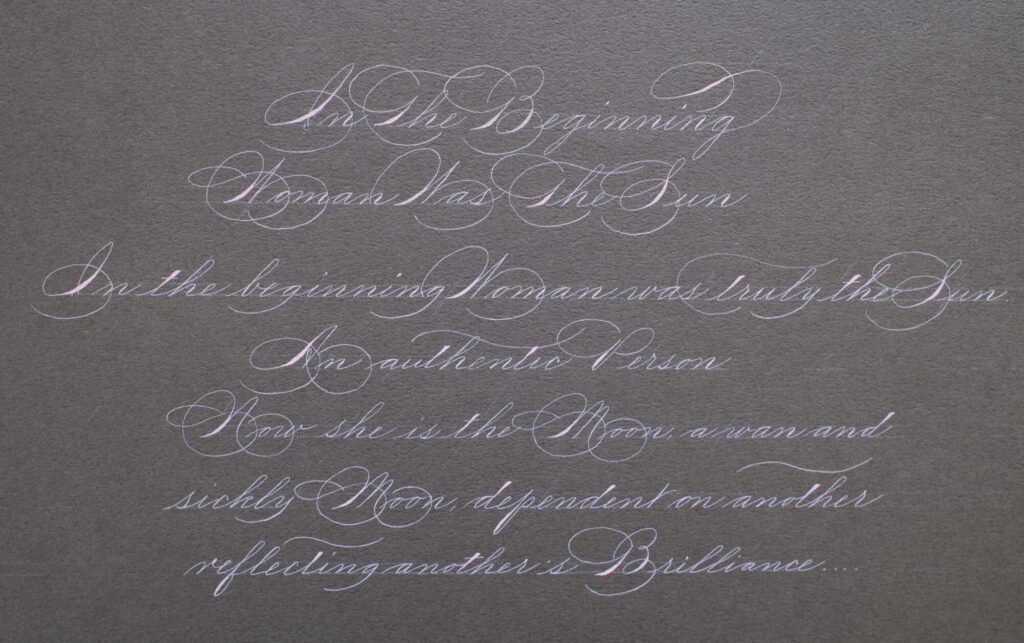 In The Beginning
Woman Was The Sun
In the beginning Woman was truly the Sun.
An authentic Person
Now she is the Moon, a wan and
sickly Moon, dependent on another
reflecting another's Brilliance....